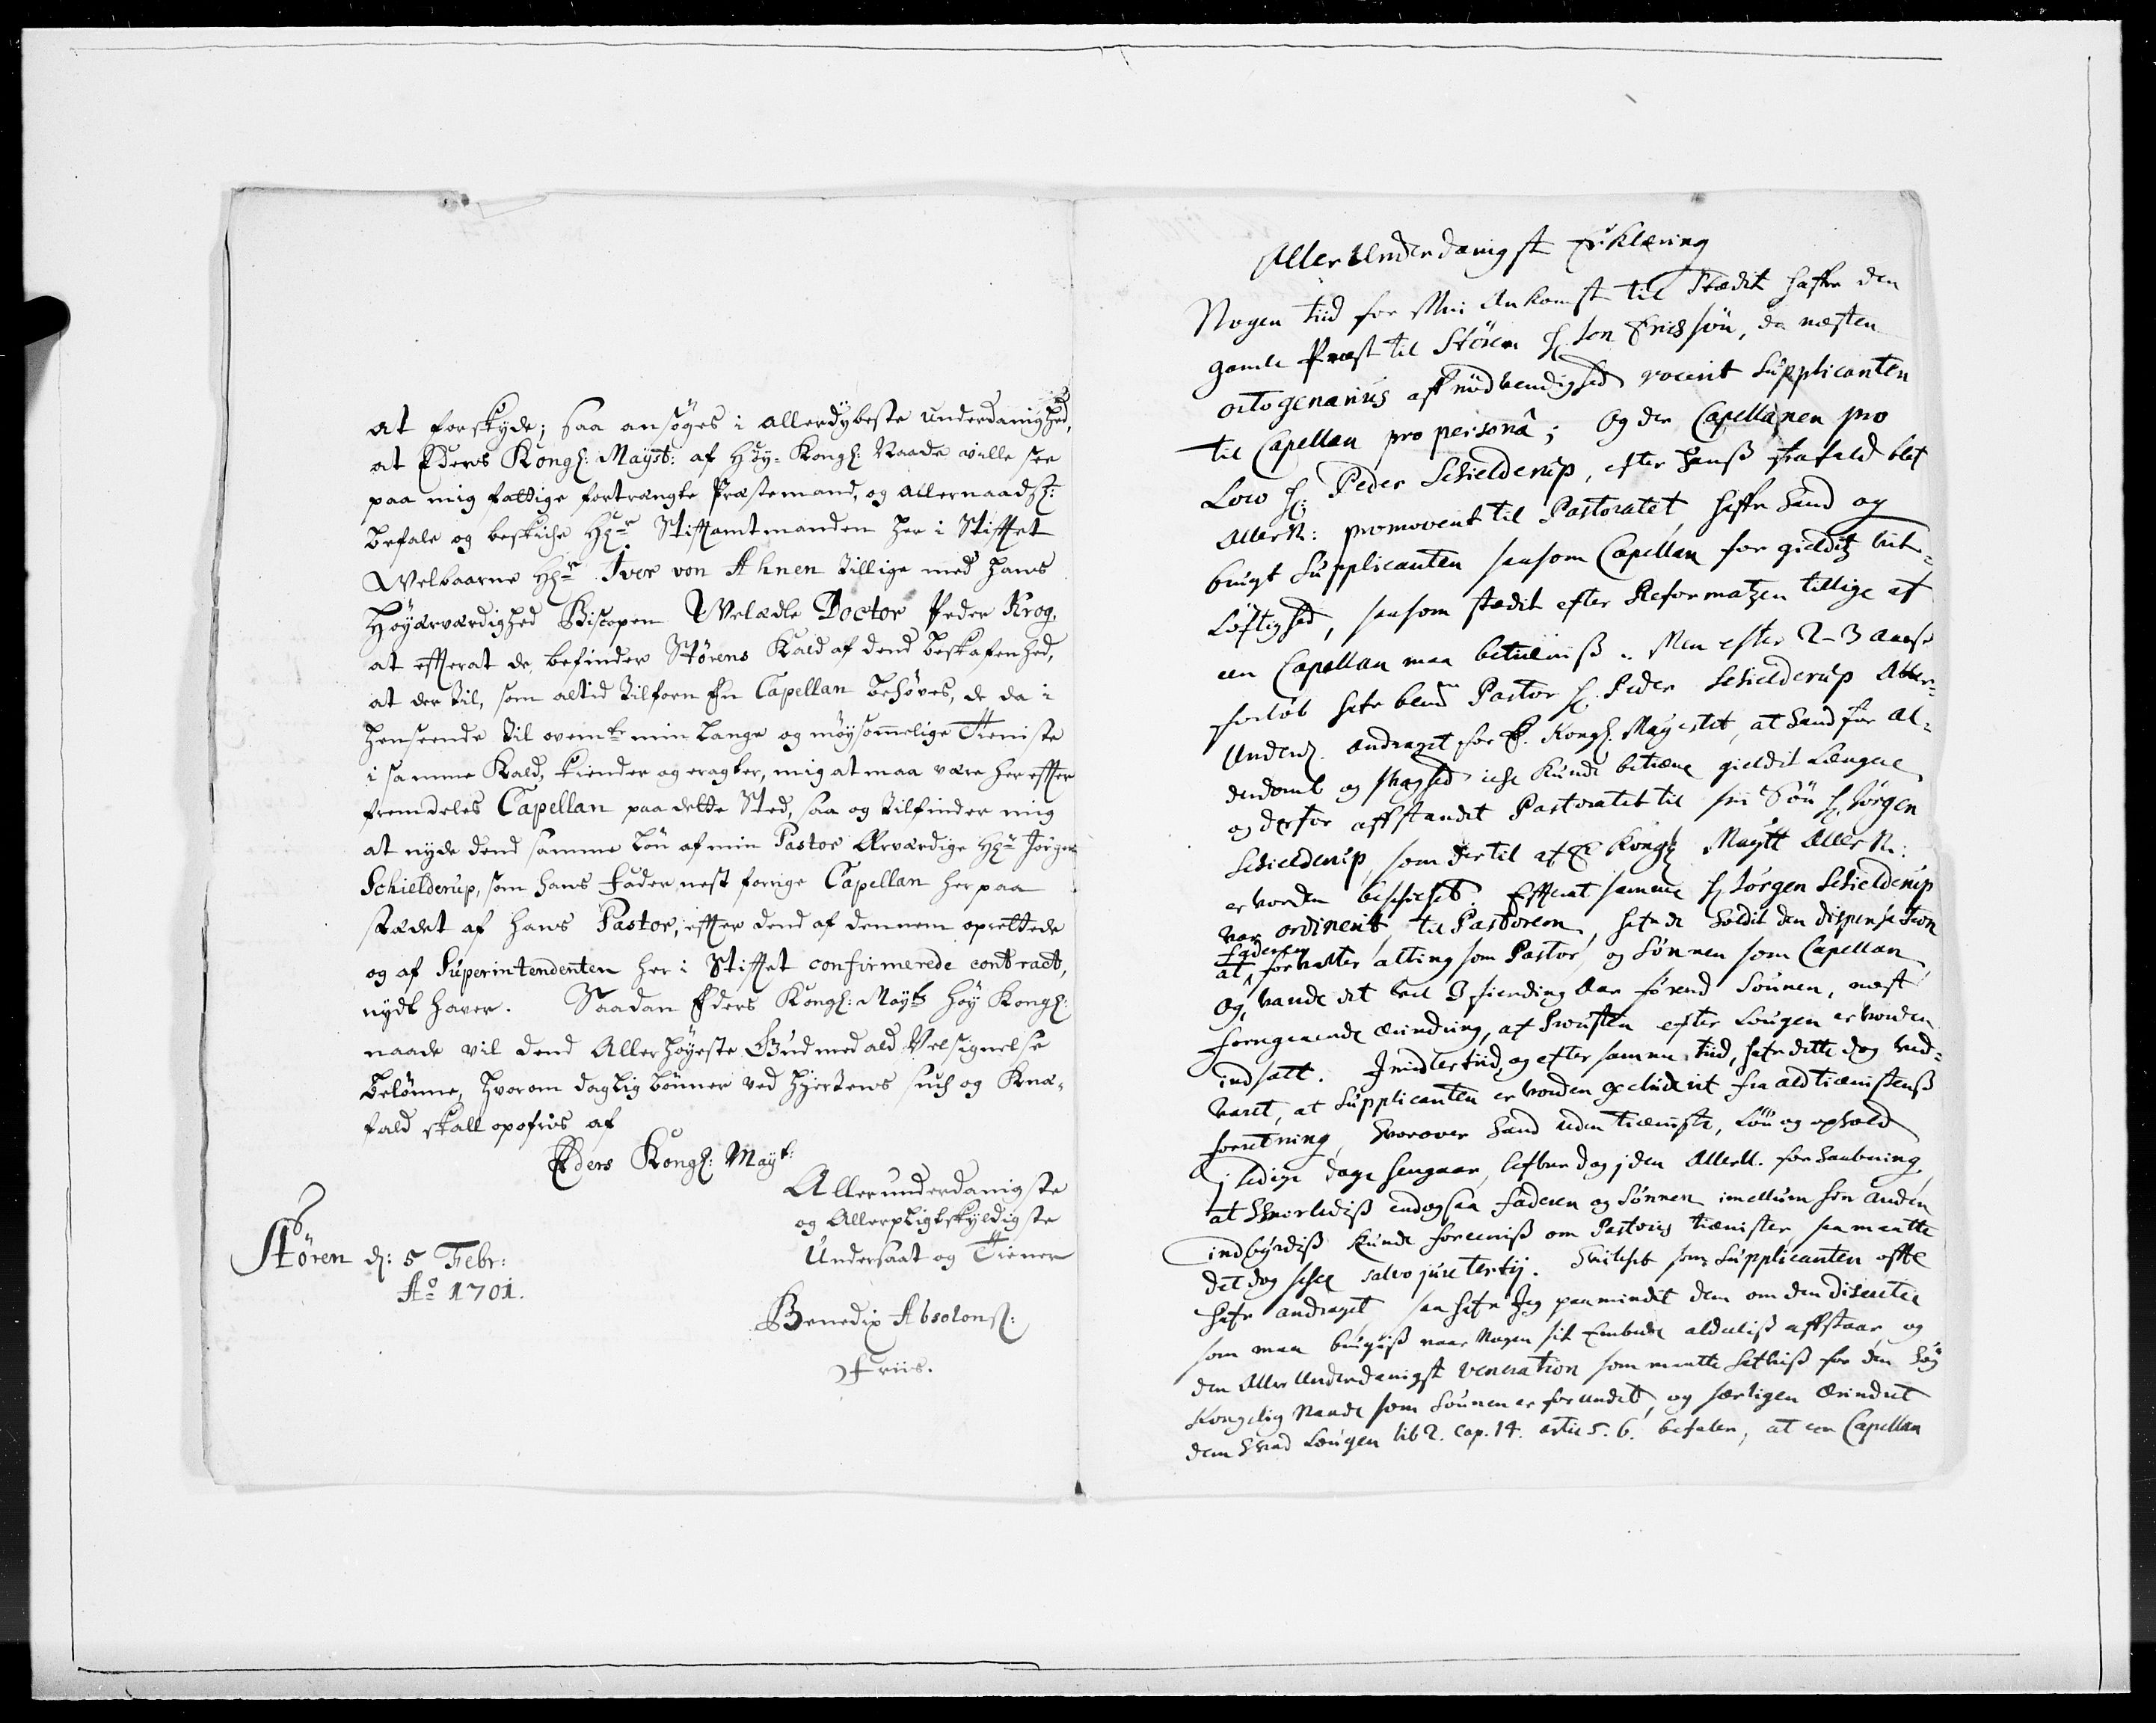 at forskyde; saa ansöges i allerdybeste underdanighed,
at Eders Kongl: Mayst: af Höy-Kongl: Naade ville see
paa mig fattige fortrængte Præstemand, og allernaadst:
befale og beskiche Hr Stifftamtmanden her i Stifftet
Welbaarne Hr Iver von Ahnen tillige med hans
Höyærværdighed Biscopen Welædle Doctor Peder Krog,
at efftterat de befinder Störens Kald af dend beskafenhed,
at der til, som altid tilforn En Capellan behöves, de da i
henseende til ovenbte min lange og möysommelige Tieniste
i samme Kald, kiender og eragter, mig at maa være her effter
fremdeles Capellan paa dette Sted, saa og tilfinder mig
at nyde dend samme lön af min Pastor Ærværdige Hr Jörgen
Schielderup, som hans Fader nest forrige Capellan her paa
stædet af hans Pastor, effter dend af dennem oprettede
og af Superintendenten her i Stifftet confirmerede contract,
nydt haver. Saadan Eders Kongl: Mayts Höy Kongl:
naade vil dend Allerhöyeste Gud med ald Velsignelse
belönne, hvorom daglig bönner ved Hjertens such og Knæ-
fald skall opofris af
Eders Kongl: Mayt:
Allerunderdanigste
og Allerpligtskyldigste
Undersaat og Tiener
Stören d: 5 Febr:
Ao 1701.
Benedix Absolons:
Friis.
AllerUnderdanigst Erklæring
Nogen tiid for Min Ankomst til Stædit hafr den
gamle Præst til Stören H Jon Erichsön, da næsten
octogenarius aff nödvendighed vocerit Supplicanten
til Capellan pro personâ; Og der Capellanen pro
Loco H. Peder Schielderup, efter hanß frafald blef
AllerN: promoverit til Pastoratet, haffr hand og
brugt Supplicanten saasom Capellan for gielditz vit-
löftighed, saasom stædit efter Reformatzen tillige af
een Capellan maa betieniß. Men efter 2-3 aars
forlöb hafr bemte Pastor H. Peder Schielderup Aller-
Underd. andraget for E. Kongl. Mayestet, at hand for Al-
derdomb og svaghed iche kunde betiene gieldit længere
og derfor affstandet Pastoratet til sin Sön H. Jörgen
Schielderup, som dertil af E Kongl Maytt AllerN:
er vorden beschichet. Effterat samme H. Jörgen Schielderup
var ordinerit til Pastorem, hafr de holdit den dispensation
at Faderen forretter alting som Pastor og Sönnen som Capellan
Og vaude det vel 3 fierding Aar förend Sönnen, næst
foregaaende erindring, af Prousten efter Lougen er vorden
indsatt. Imidlertiid, og efter samme tiid, hafr dette dog ved-
varit, at Supplicanten er vorden excluderit fra ald tienistenß
forretning, hvorover hand uden tieniste, Lön og ophold
i ledige dage hengaar, lefver dog i den AllerU. forhaabning
at hvorledeß endogsaa Faderen og Sönnen imellum hin anden
indbyrdiß kunde foreeniß om Pastoris tienister, saa maatte
det dog schee salvo jure tertij. Hvilchet som Supplicanten offte
hafr andraget, saa hafr Jeg paamindet dem om den discretie
som maa brugiß naar Nogen sit Embede aldeeliß affstaar, og
den AllerUnderdanigst veneration som maatte hafviß for den höy
Kongelig Naade som Sönnen er forundet, og særligen Erindret
dem hvad Lougen lib 2. Cap. 14. artic 5. 6. befaler, at een Capellan